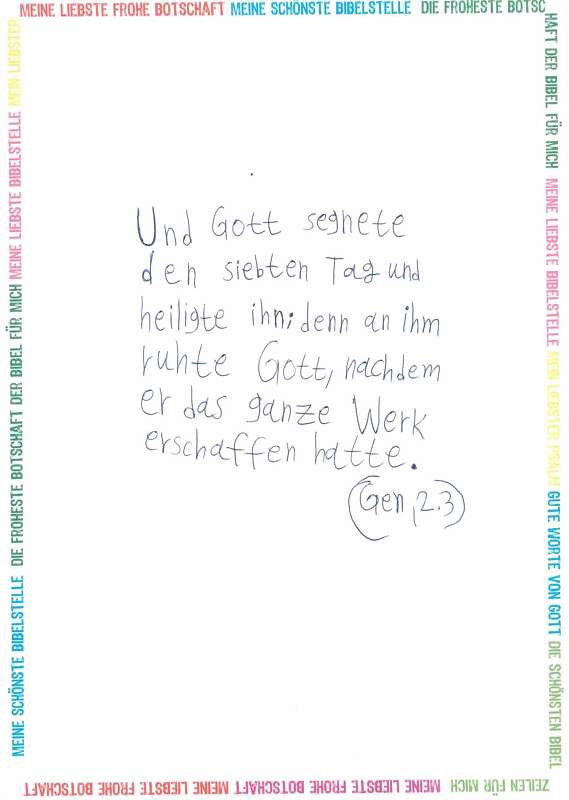 MEINE LIEBSTE FROHE BOTSCHAFT MEINE SCHÖNSTE BIBELSTELLE DIE FROHESTE BOTSC
HAFT DER BIBEL FÜR MICH MEINE LIEBSTE BIBELSTELLE MEIN LIEBSTER PSALM GUTE WORTE VON GOTT DIE SCHÖNSTEN BIBEL
ZEILEN FÜR MICH MEINE LIEBSTE FROHE BOTSCHAFT MEINE LIEBSTE FROHE BOTSCHAFT
MEINE SCHÖNSTE BIBELSTELLE DIE FROHESTE BOTSCHAFT DER BIBEL FÜR MICH MEINE LIEBSTE BIBELSTELLE MEIN LIEBSTER
Und Gott segnete
den siebten Tag und
heiligte ihn; denn an ihm
ruhte Gott, nachdem
er das ganze Werk
erschaffen hatte.
(Gen, 2.3)